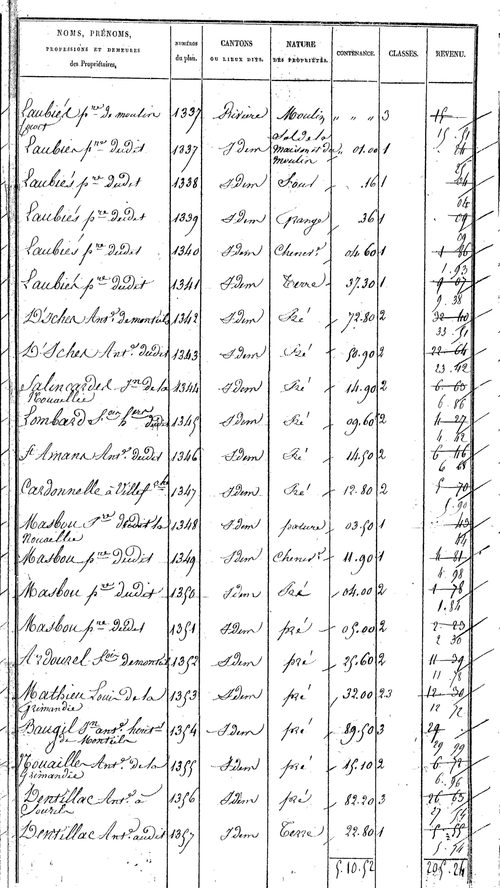 NOMS, PRÉNOMS, PROFESSIONS ET DEMEURES des Propriétaires, NUMÉROS du plan. CANTONS OU LIEUX DITS. NATURE DES PROPRIÉTÉS. CONTENANCE. CLASSES. REVENU.
Laubiés p.re de moulin 1337 Rivière Moulin " " " 3 15
15 51
Laubiés p.re dudit 1337 Idem Sol de la maison et du moulin 01.00 1 24
25
Laubiés p.re dudit 1338 Idem Four .16 1 04
04
Laubiés p.re dudit 1339 Idem Grange .36 1 09
09
Laubiés p.re dudit 1340 Idem Chenev.re 04.60 1 1 86
1.93
Laubiés p.re dudit 1341 Idem Terre 37.30 1 9 07
9 38
D'Isches Ant.e de monteils 1342 Idem Pré 72.80 2 32 40
33 51
D'Isches Ant.e dudit 1343 Idem Pré 50.90 2 22 64
23.42
Salincardes J.n de la Nouaillie 1344 Idem Pré 14.90 2 6 63
6 86
Lombard 1345 Idem Pré 09.60 2 4 27
4 42
S.t Amans Ant.e dudit 1346 Idem Pré 14.50 2 6 46
6 68
Cardonnelle à Villef.che 1347 Idem Pré 12.80 2 5 70
5.90
Masbou P.re de la Nouaillie 1348 Idem pature 03.50 1 43
Masbou p.re dudit 1349 Idem Chenev.re 11.90 1 4 81
4 98
Masbou p.re dudit 1350 Idem Pré 04.00 2 1 78
1.84
Masbou p.re dudit 1351 Idem pré 05.00 2 2 23
2 30
Ardourel de monteils 1352 Idem pré 25.60 2 11 39
11 78
Mathieu Louis de la Grimandie 1353 Idem pré 32.00 23 12 30
12 72
Baugil J.n ant.e de Monteils 1354 Idem pré 89.50 3 29
29 29
Nouailles Ant.e de la Grimandie 1355 Idem pré 15.10 2 6 72
6 96
Dentillac Ant.e à 1356 Idem pré 82.20 3 26 63
27 54
Dentillac Ant.e audit 1357 Idem Terre 22.80 1 5 55
5 74
5.10.52 205.24